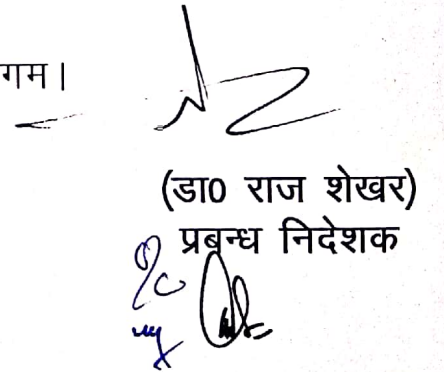 गम।
(डा0 राज शेखर)
प्रबन्ध निदेशक